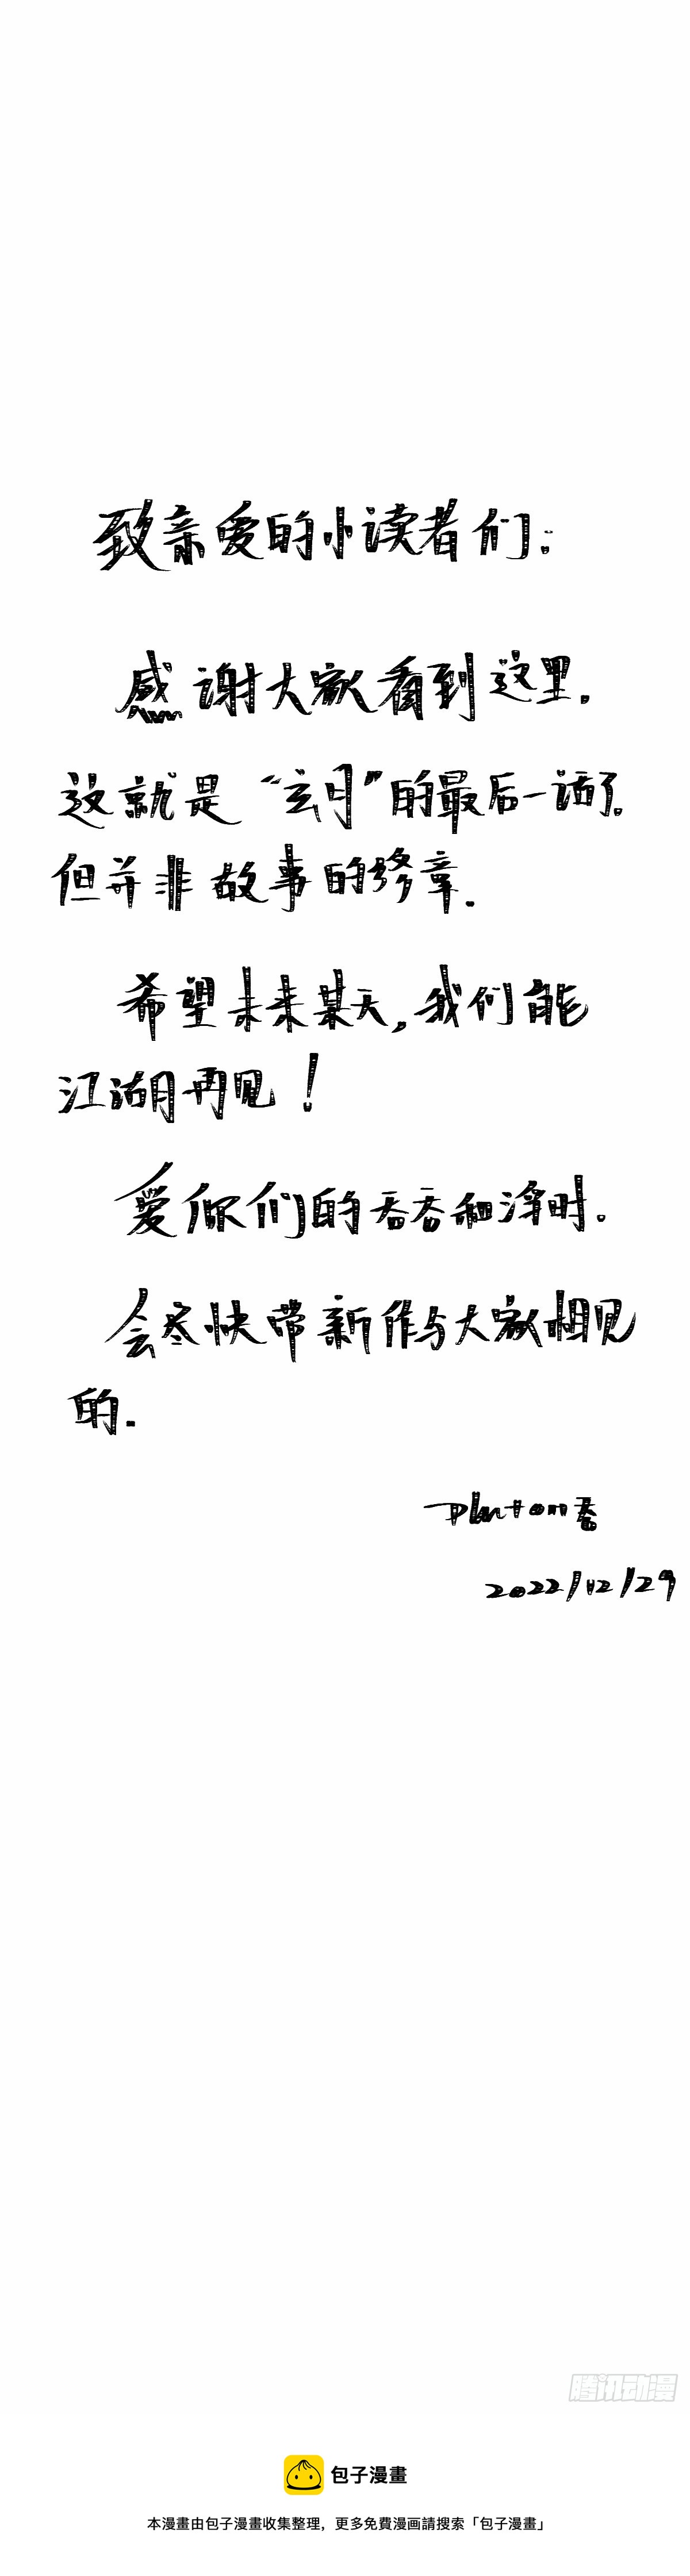 致亲爱的小读者们：
感谢大家看到这里。
这就是“玄月”的最后一话了。
但并非故事的终章.
希望未来某天,我们能
江湖再见！
爱你们的吞吞和净时。
会尽快带新作与大家相见
的.
Plutom吞
2022/12/29
腾讯动漫
包子漫畫
本漫畫由包子漫畫收集整理，更多免費漫画請搜索「包子漫畫」